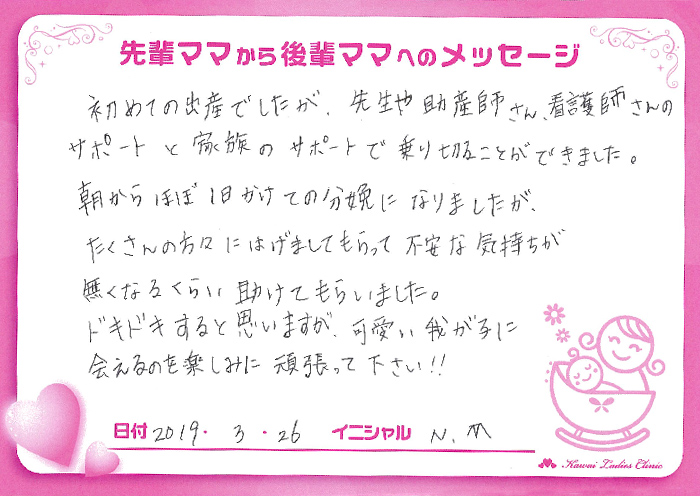 先輩ママから後輩ママへのメッセージ
初めての出産でしたが、先生や助産師さん、看護師さんの
サポートと家族のサポートで乗り切ることができました。
朝からほぼ1日かけての分娩になりましたが、
たくさんの方々にはげましてもらって不安な気持ちが
無くなるくらい助けてもらいました。
ドキドキすると思いますが、可愛い我が子に
会えるのを楽しみに頑張って下さい!!
日付 2019. 3. 26 イニシャル N. M
Kawai Ladies Clinic